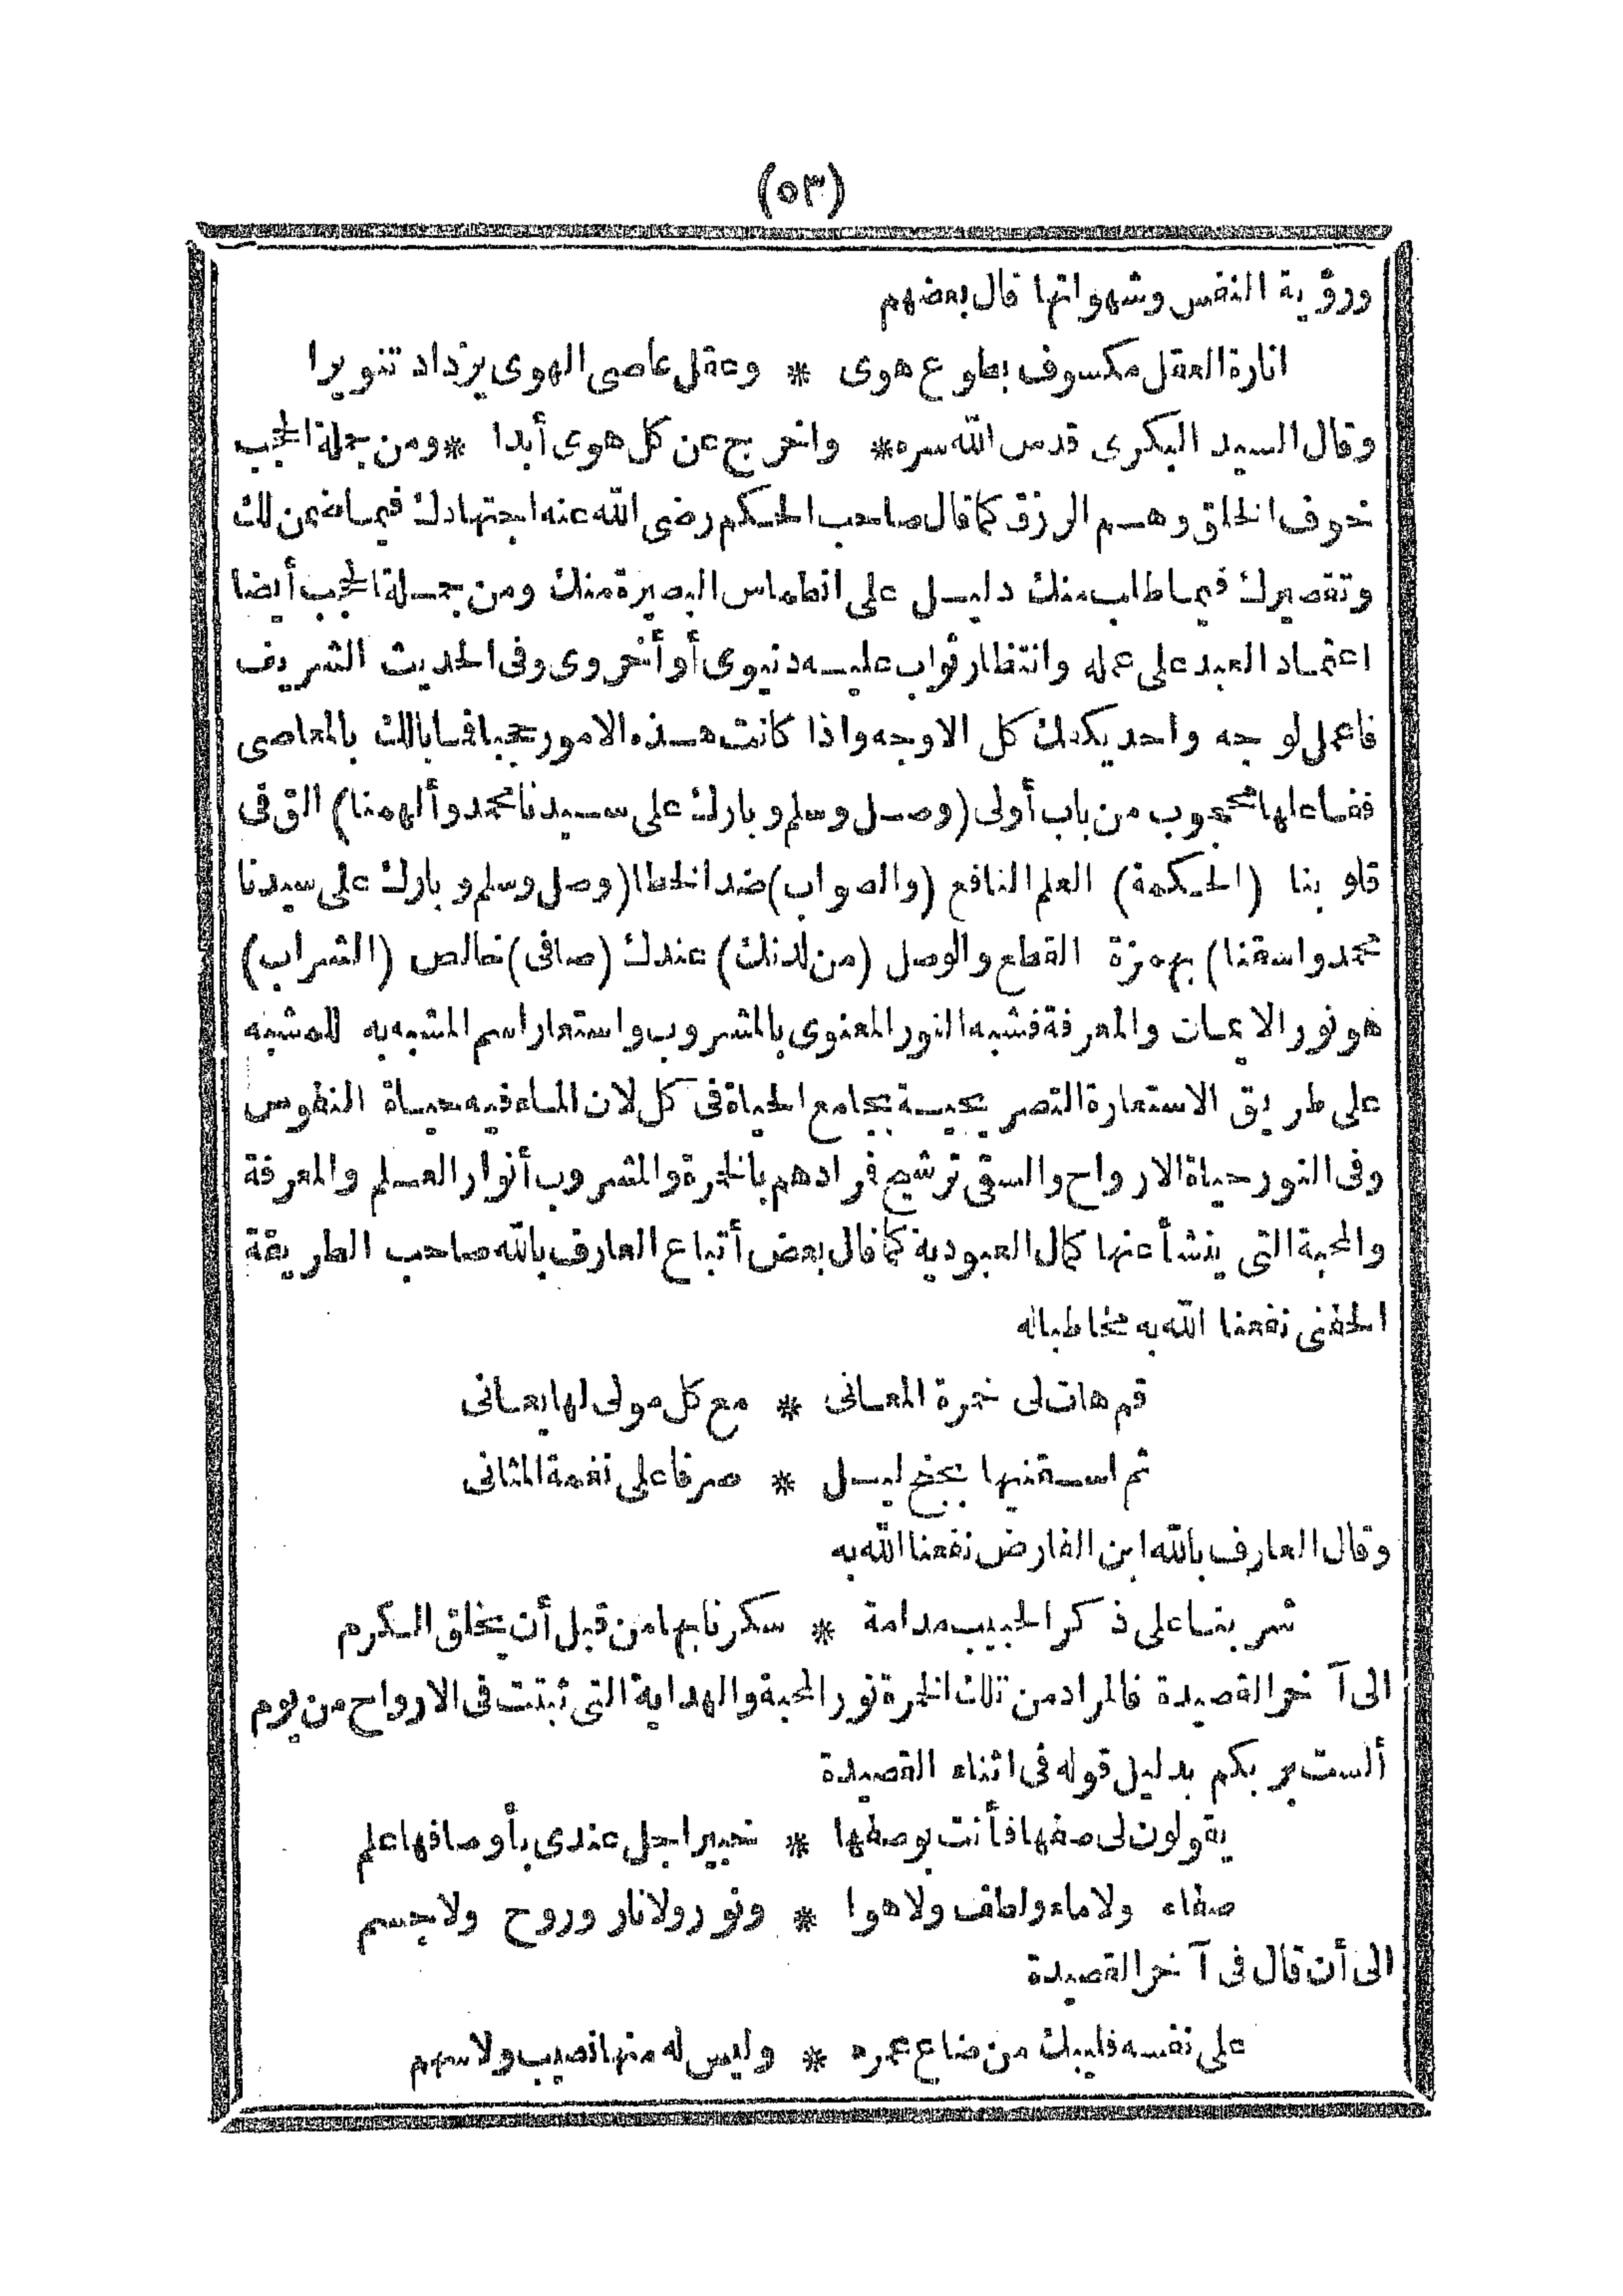 (٥٣)
ورؤية النفس وشهواتها قال بعضهم
انارة العقل مكسوف بطوع هوى * وعقل عاصى الهوى يزداد تنويرا
وقال السيد البكرى قدس الله سره * واخرج عن كل هوى أبدا * ومن جملة الحجب
خوف الخلق وهم الرزق كما قال صاحب الحكم رضى الله عنه اجتهادك فيما ضمن لك
وتقصيرك فيما طلب منك دليل على انطماس البصيرة منك ومن جملة الحجب أيضا
اعتماد العبد على عمله وانتظار ثواب عليه دنيوى أو أخروى وفى الحديث الشريف
فاعمل لوجه واحد يكفك كل الاوجه واذا كانت هذه الامور حجبا فما بالك بالمعاصى
ففاعلها محجوب من باب أولى (وصل وسلم وبارك على سيدنا محمد وألهمنا) الق فى
قلوبنا (الحكمة) العلم النافع (والصواب) ضد الخطا (وصل وسلم وبارك على سيدنا
محمد واسقنا) بهمزة القطع والوصل (من لدنك) عندك (صافى) خالص (الشراب)
هو نور الايمان والمعرفة فشبه النور المعنوى بالمشروب واستعار اسم المشبه به للمشبه
على طريق الاستعارة التصريحية بجامع الحياة فى كل لان الماء فيه حياة النفوس
وفى النور حياة الارواح والسقى ترشيح فرادهم بالخمرة والمشروب أنوار العلم والمعرفة
والمحبة التى ينشأ عنها كمال العبودية كما قال بعض أتباع العارف بالله صاحب الطريقة
الحفنى نفعنا الله به مخاطبا له
قم هات لى خمرة المعانى * مع كل مولى لها يعانى
ثم اسقنيها بجنح ليل * صرفا على نغمة المثانى
وقال العارف بالله ابن الفارض نفعنا الله به
شربنا على ذكر الحبيب مدامة * سكرنا بها من قبل أن يخلق الكرم
الى آخر القصيدة فالمراد من تلك الخمرة نور المحبة والهداية التى ثبتت فى الارواح من يوم
ألست بربكم بدليل قوله فى اثناء القصيدة
يقولون لى صفها فأنت بوصفها * خبير اجل عندى بأوصافها علم
صفاء ولا ماء ولطف ولا هوا * ونور ولا نار وروح ولا جسم
الى أن قال فى آخر القصيدة
على نفسه فليبك من ضاع عمره * وليس له منها نصيب ولا سهم